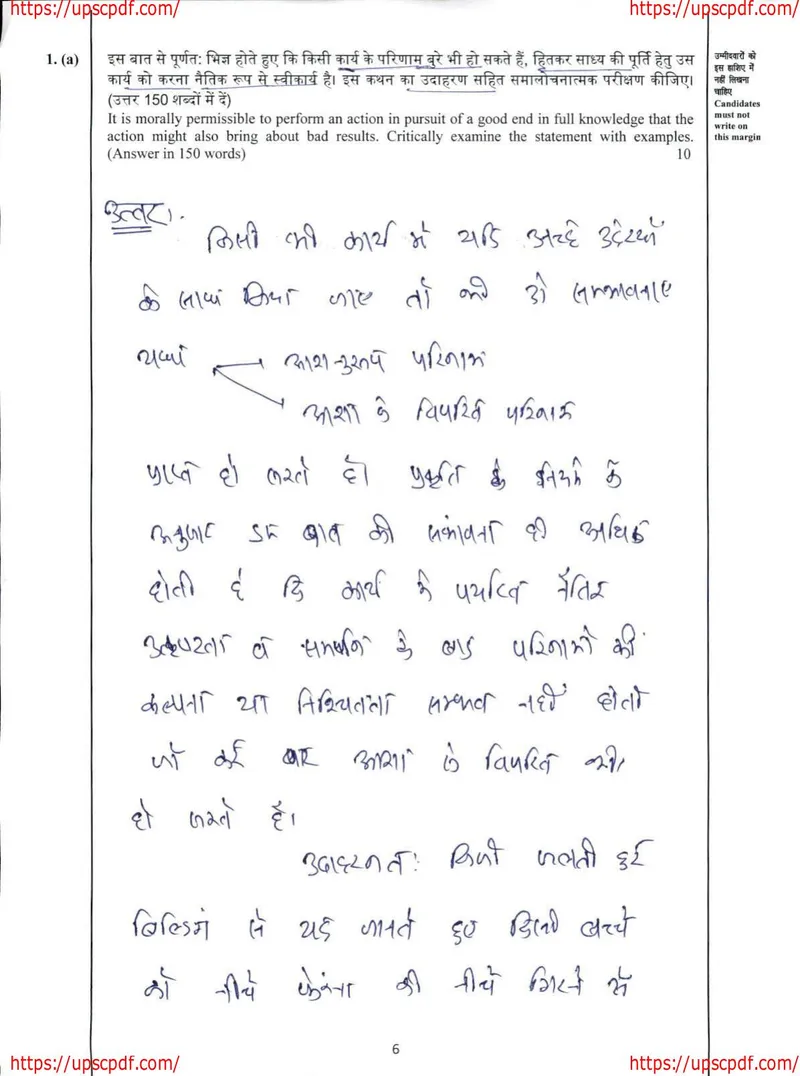 https://upscpdf.com/
https://upscpdf.com/
1. (a)
इस बात से पूर्णत: भिज्ञ होते हुए कि किसी कार्य के परिणाम बुरे भी हो सकते हैं, हितकर साध्य की पूर्ति हेतु उस
कार्य को करना नैतिक रूप से स्वीकार्य है। इस कथन का उदाहरण सहित समालोचनात्मक परीक्षण कीजिए।
(उत्तर 150 शब्दों में दें)
It is morally permissible to perform an action in pursuit of a good end in full knowledge that the
action might also bring about bad results. Critically examine the statement with examples.
(Answer in 150 words)
10
उम्मीदवारों को
इस हाशिए में
नहीं लिखना
चाहिए
Candidates
must not
write on
this margin
उत्तर।.
किसी भी कार्य में यदि अच्छे उद्देश्यों
के साथ किया जाए तो भी दो सम्भावनाए
यथा → आशा-नुरूप परिणाम
→ आशा के विपरित परिणाम
प्राप्त हो सकते है। प्रकृति के नियमों के
अनुसार इस बात की संभावना ही अधिक
होती है कि कार्य में पर्याप्त नैतिक
व समर्पण के बाद परिणामों की
कल्पना या निश्चितता सम्भव नहीं होतो
जो कई बार आशा के विपरित भी
हो सकते हैं।
उदाहरणतः किसी जलती हुई
बिल्डिंग से यह जानते हुए किसी बच्चे
को नीचे फेंकना की नीचे गिरने से
6
https://upscpdf.com/
https://upscpdf.com/